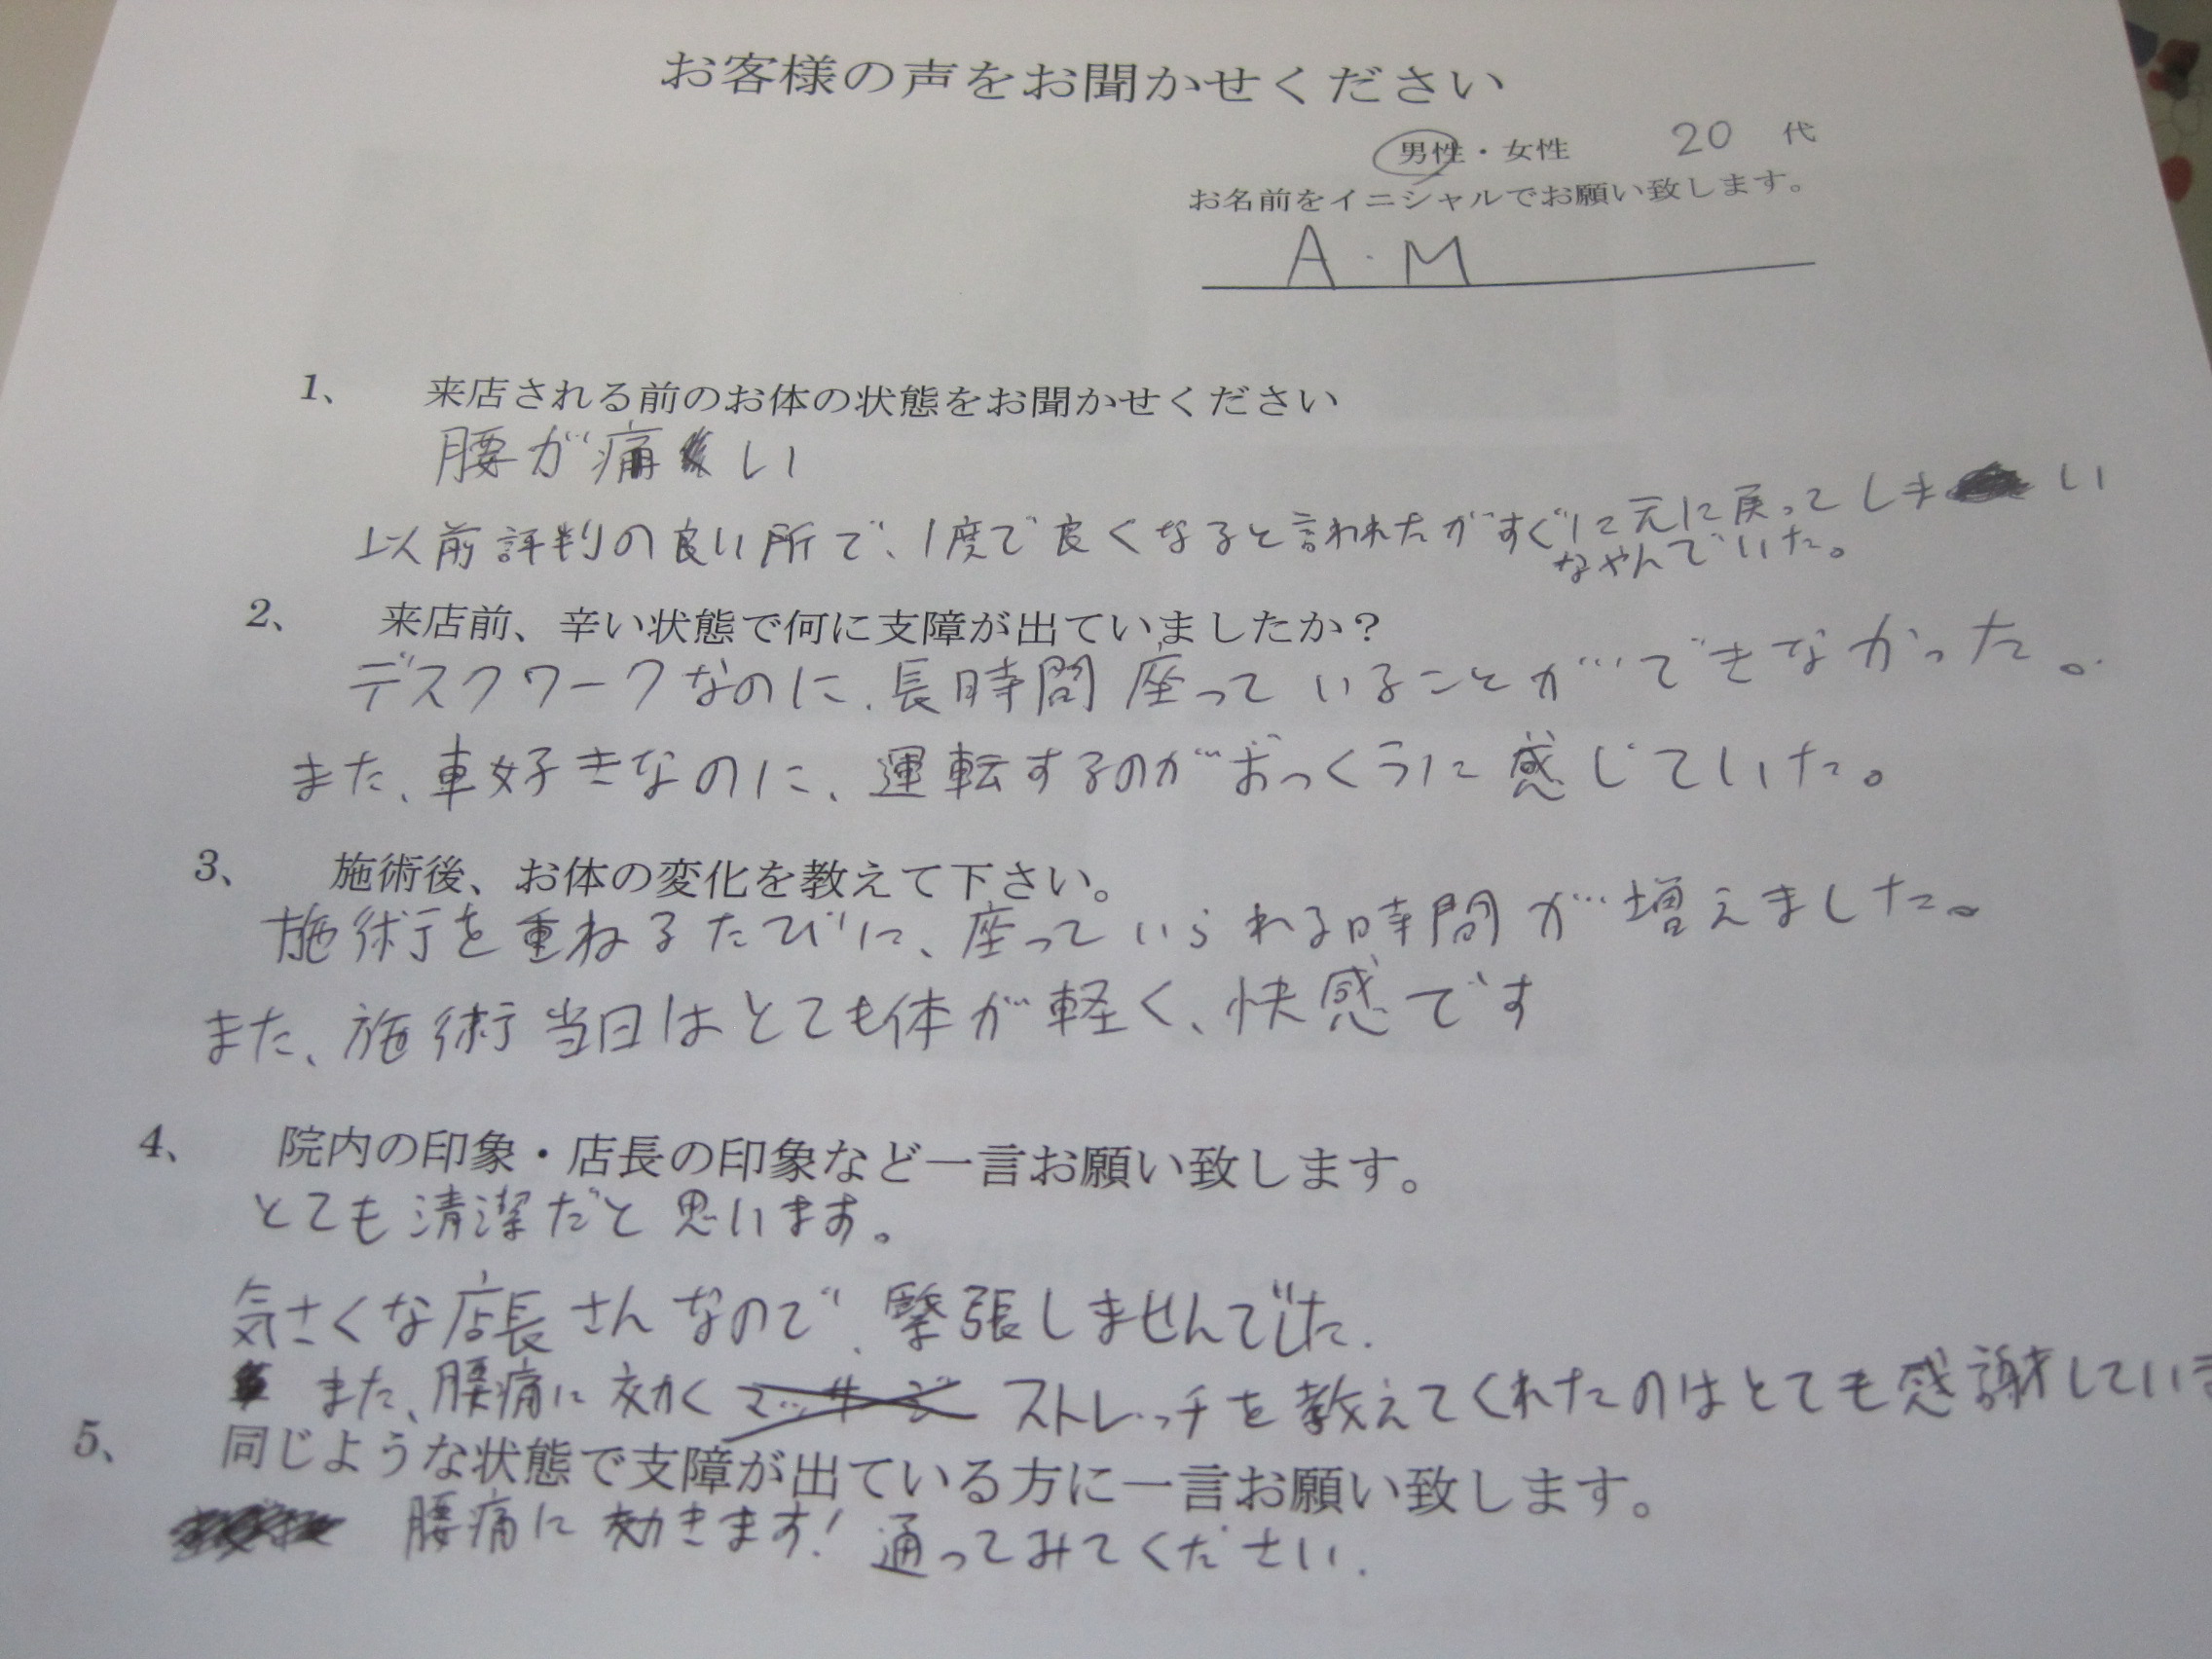 お客様の声をお聞かせください
男性・女性 20 代
お名前をイニシャルでお願い致します。
A・M
1、 来店される前のお体の状態をお聞かせください
腰が痛い
以前評判の良い所で、1度で良くなると言われたがすぐに元に戻ってしまい
なやんでいた。
2、 来店前、辛い状態で何に支障が出ていましたか？
デスクワークなのに、長時間座っていることができなかった。
また、車好きなのに、運転するのがおっくうに感じていた。
3、 施術後、お体の変化を教えて下さい。
施術を重ねるたびに、座っていられる時間が増えました。
また、施術当日はとても体が軽く、快感です
4、 院内の印象・店長の印象など一言お願い致します。
とても清潔だと思います。
気さくな店長さんなので、緊張しませんでした.
また、腰痛に効くストレッチを教えてくれたのはとても感謝していま
5、 同じような状態で支障が出ている方に一言お願い致します。
腰痛に効きます！通ってみてください.